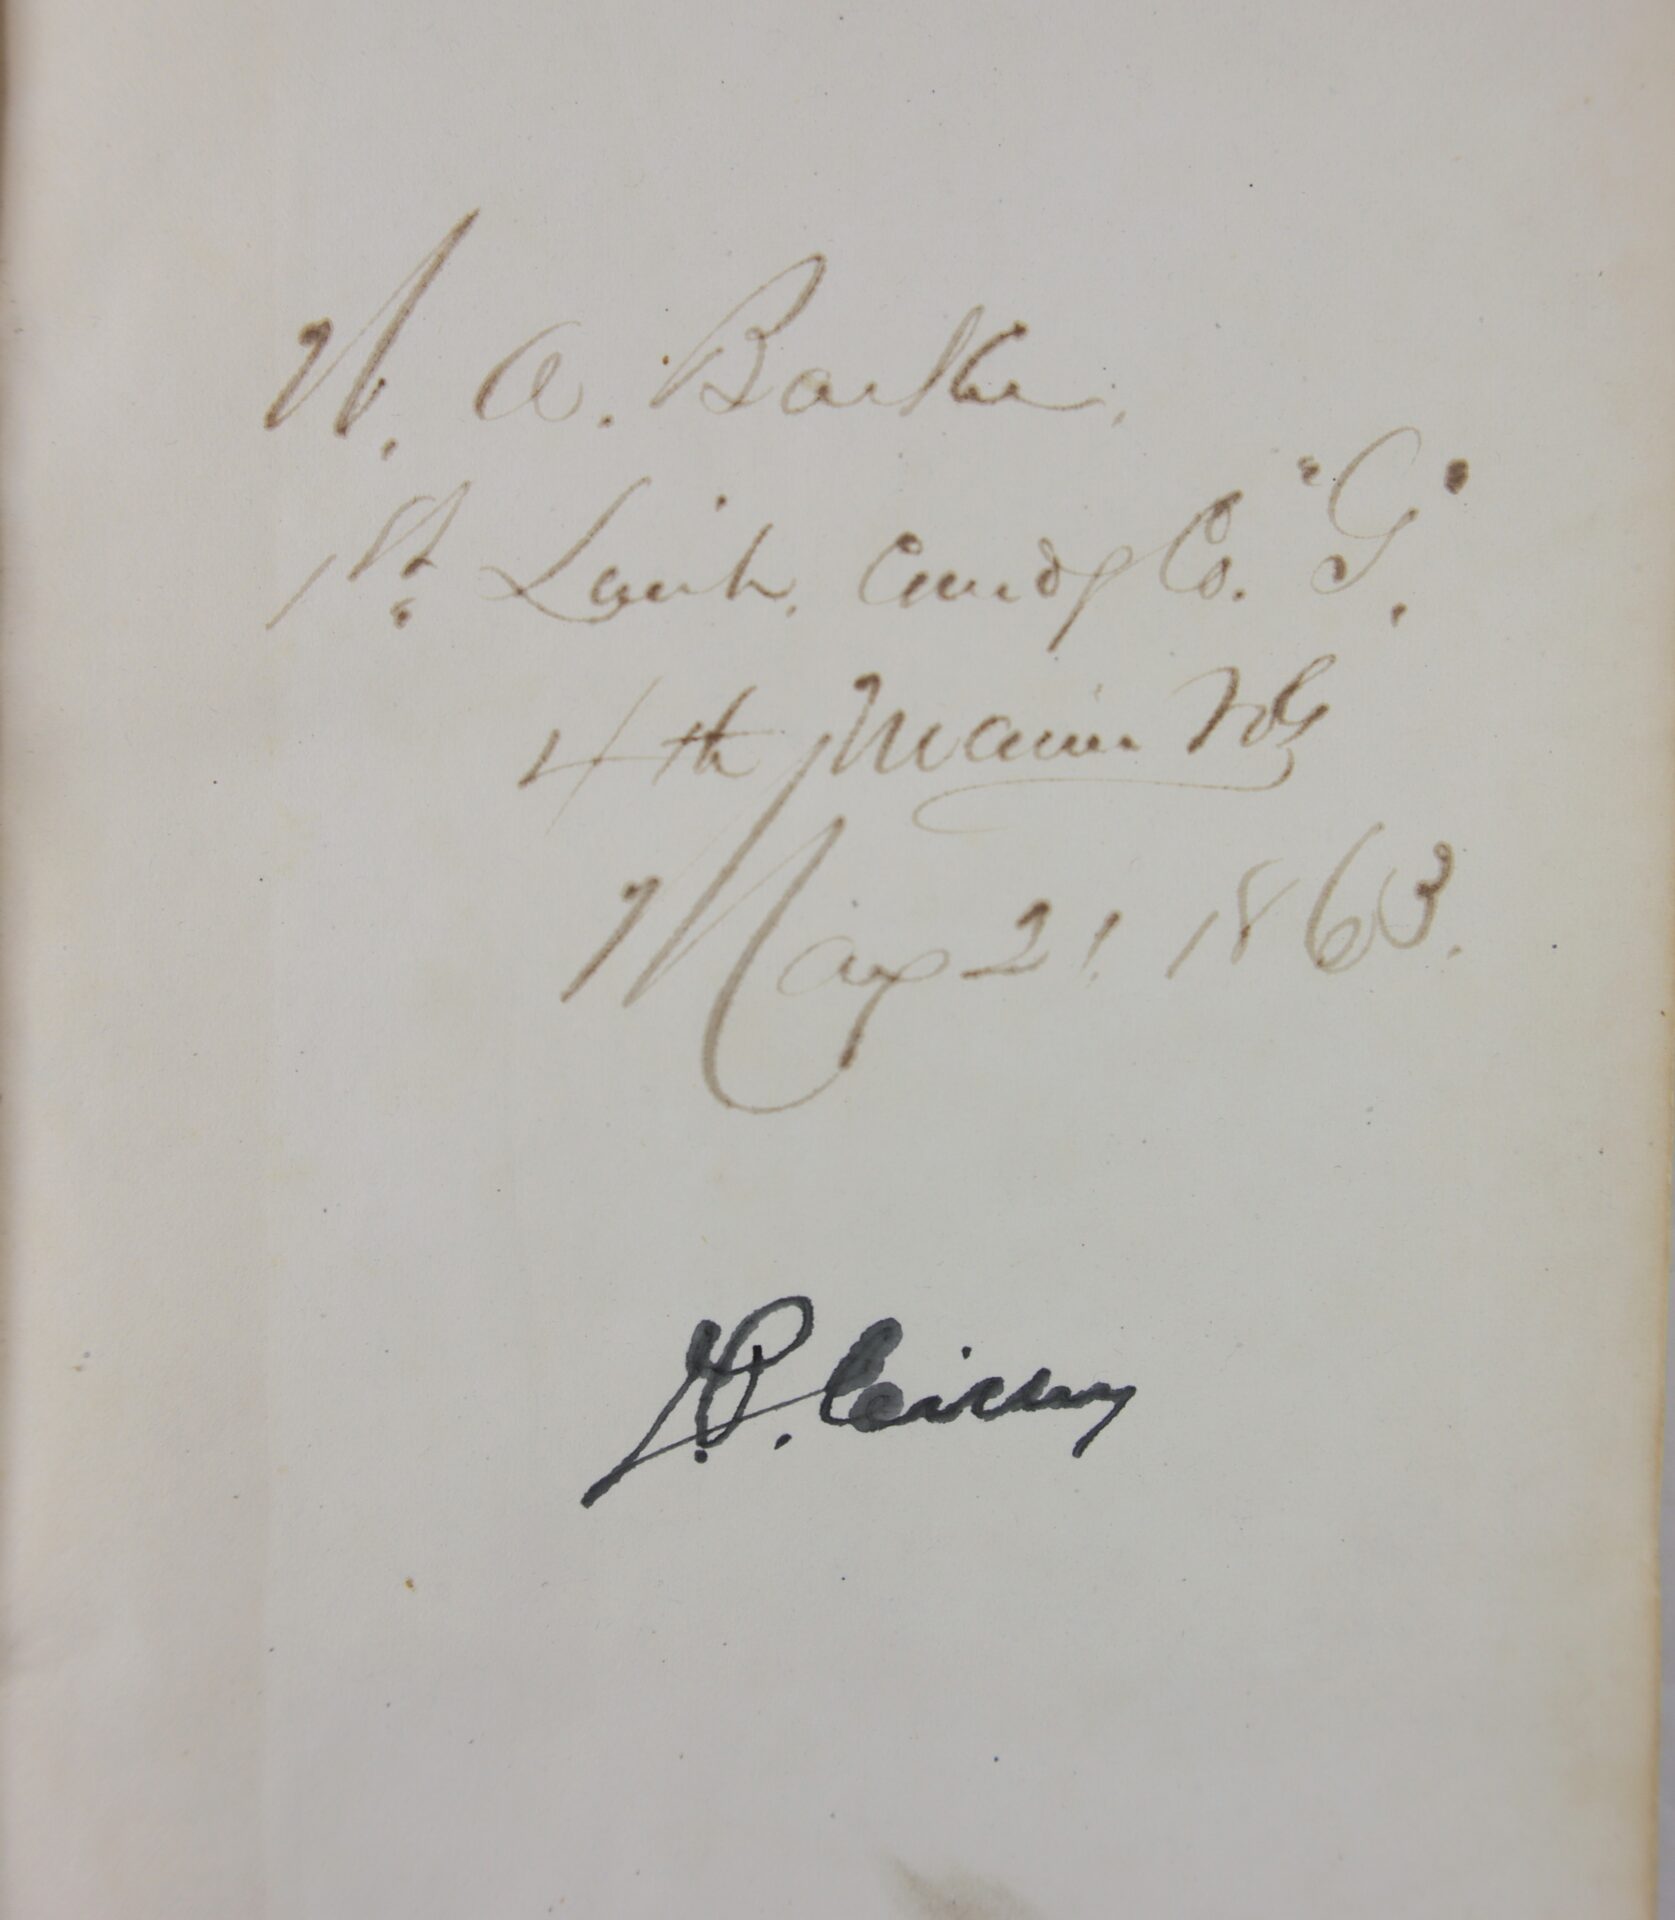 W. A. Barker.
1st Lieut. Comdg Co. "G".
4th Maine Vols
May 21. 1863.